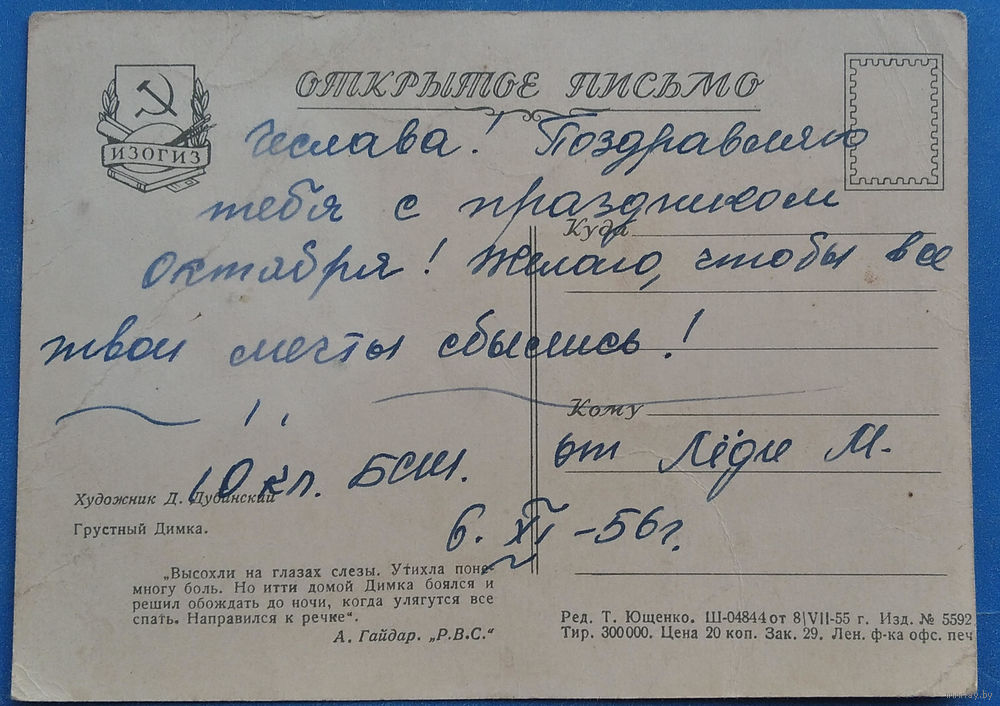 ОТКРЫТОЕ ПИСЬМО
ИЗОГИЗ
Чеслава! Поздравляю
тебя с праздником
Октября! Желаю, чтобы все
твои мечты сбылись!
Куда
Кому
10 кл. БСШ.
от Лёди М.
6. XI -56 г.
Художник Д. Дубинский
Грустный Димка.
„Высохли на глазах слезы. Утихла поне-
многу боль. Но итти домой Димка боялся и
решил обождать до ночи, когда улягутся все
спать. Направился к речке“.
А. Гайдар. „Р.В.С.“
Ред. Т. Ющенко. Ш-04844 от 8|VII-55 г. Изд. № 5592
Тир. 300000. Цена 20 коп. Зак. 29. Лен. ф-ка офс. печ